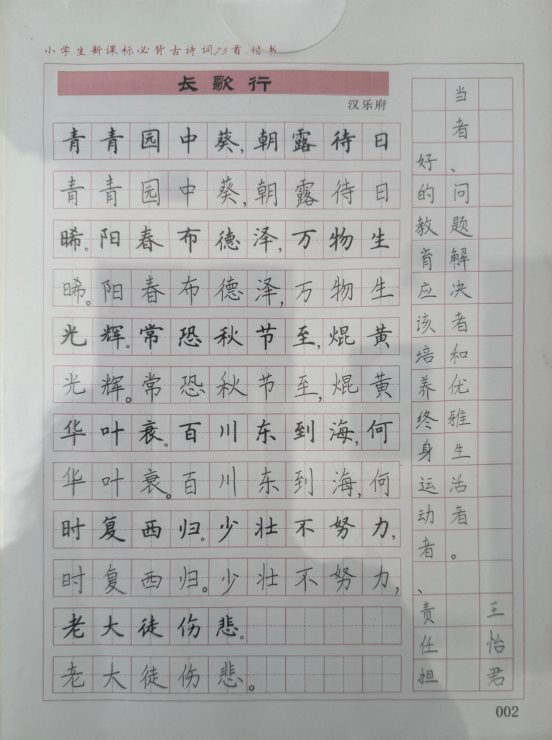 小学生新课标必背古诗词75首·楷书
长歌行
汉乐府
青青园中葵,朝露待日
青青园中葵,朝露待日
晞。阳春布德泽,万物生
晞。阳春布德泽,万物生
光辉。常恐秋节至,焜黄
光辉。常恐秋节至,焜黄
华叶衰。百川东到海,何
华叶衰。百川东到海,何
时复西归。少壮不努力,
时复西归。少壮不努力,
老大徒伤悲。
老大徒伤悲。
好的教育应该培养终身运动者、责任担
当者、问题解决者和优雅生活者。
王怡君
002